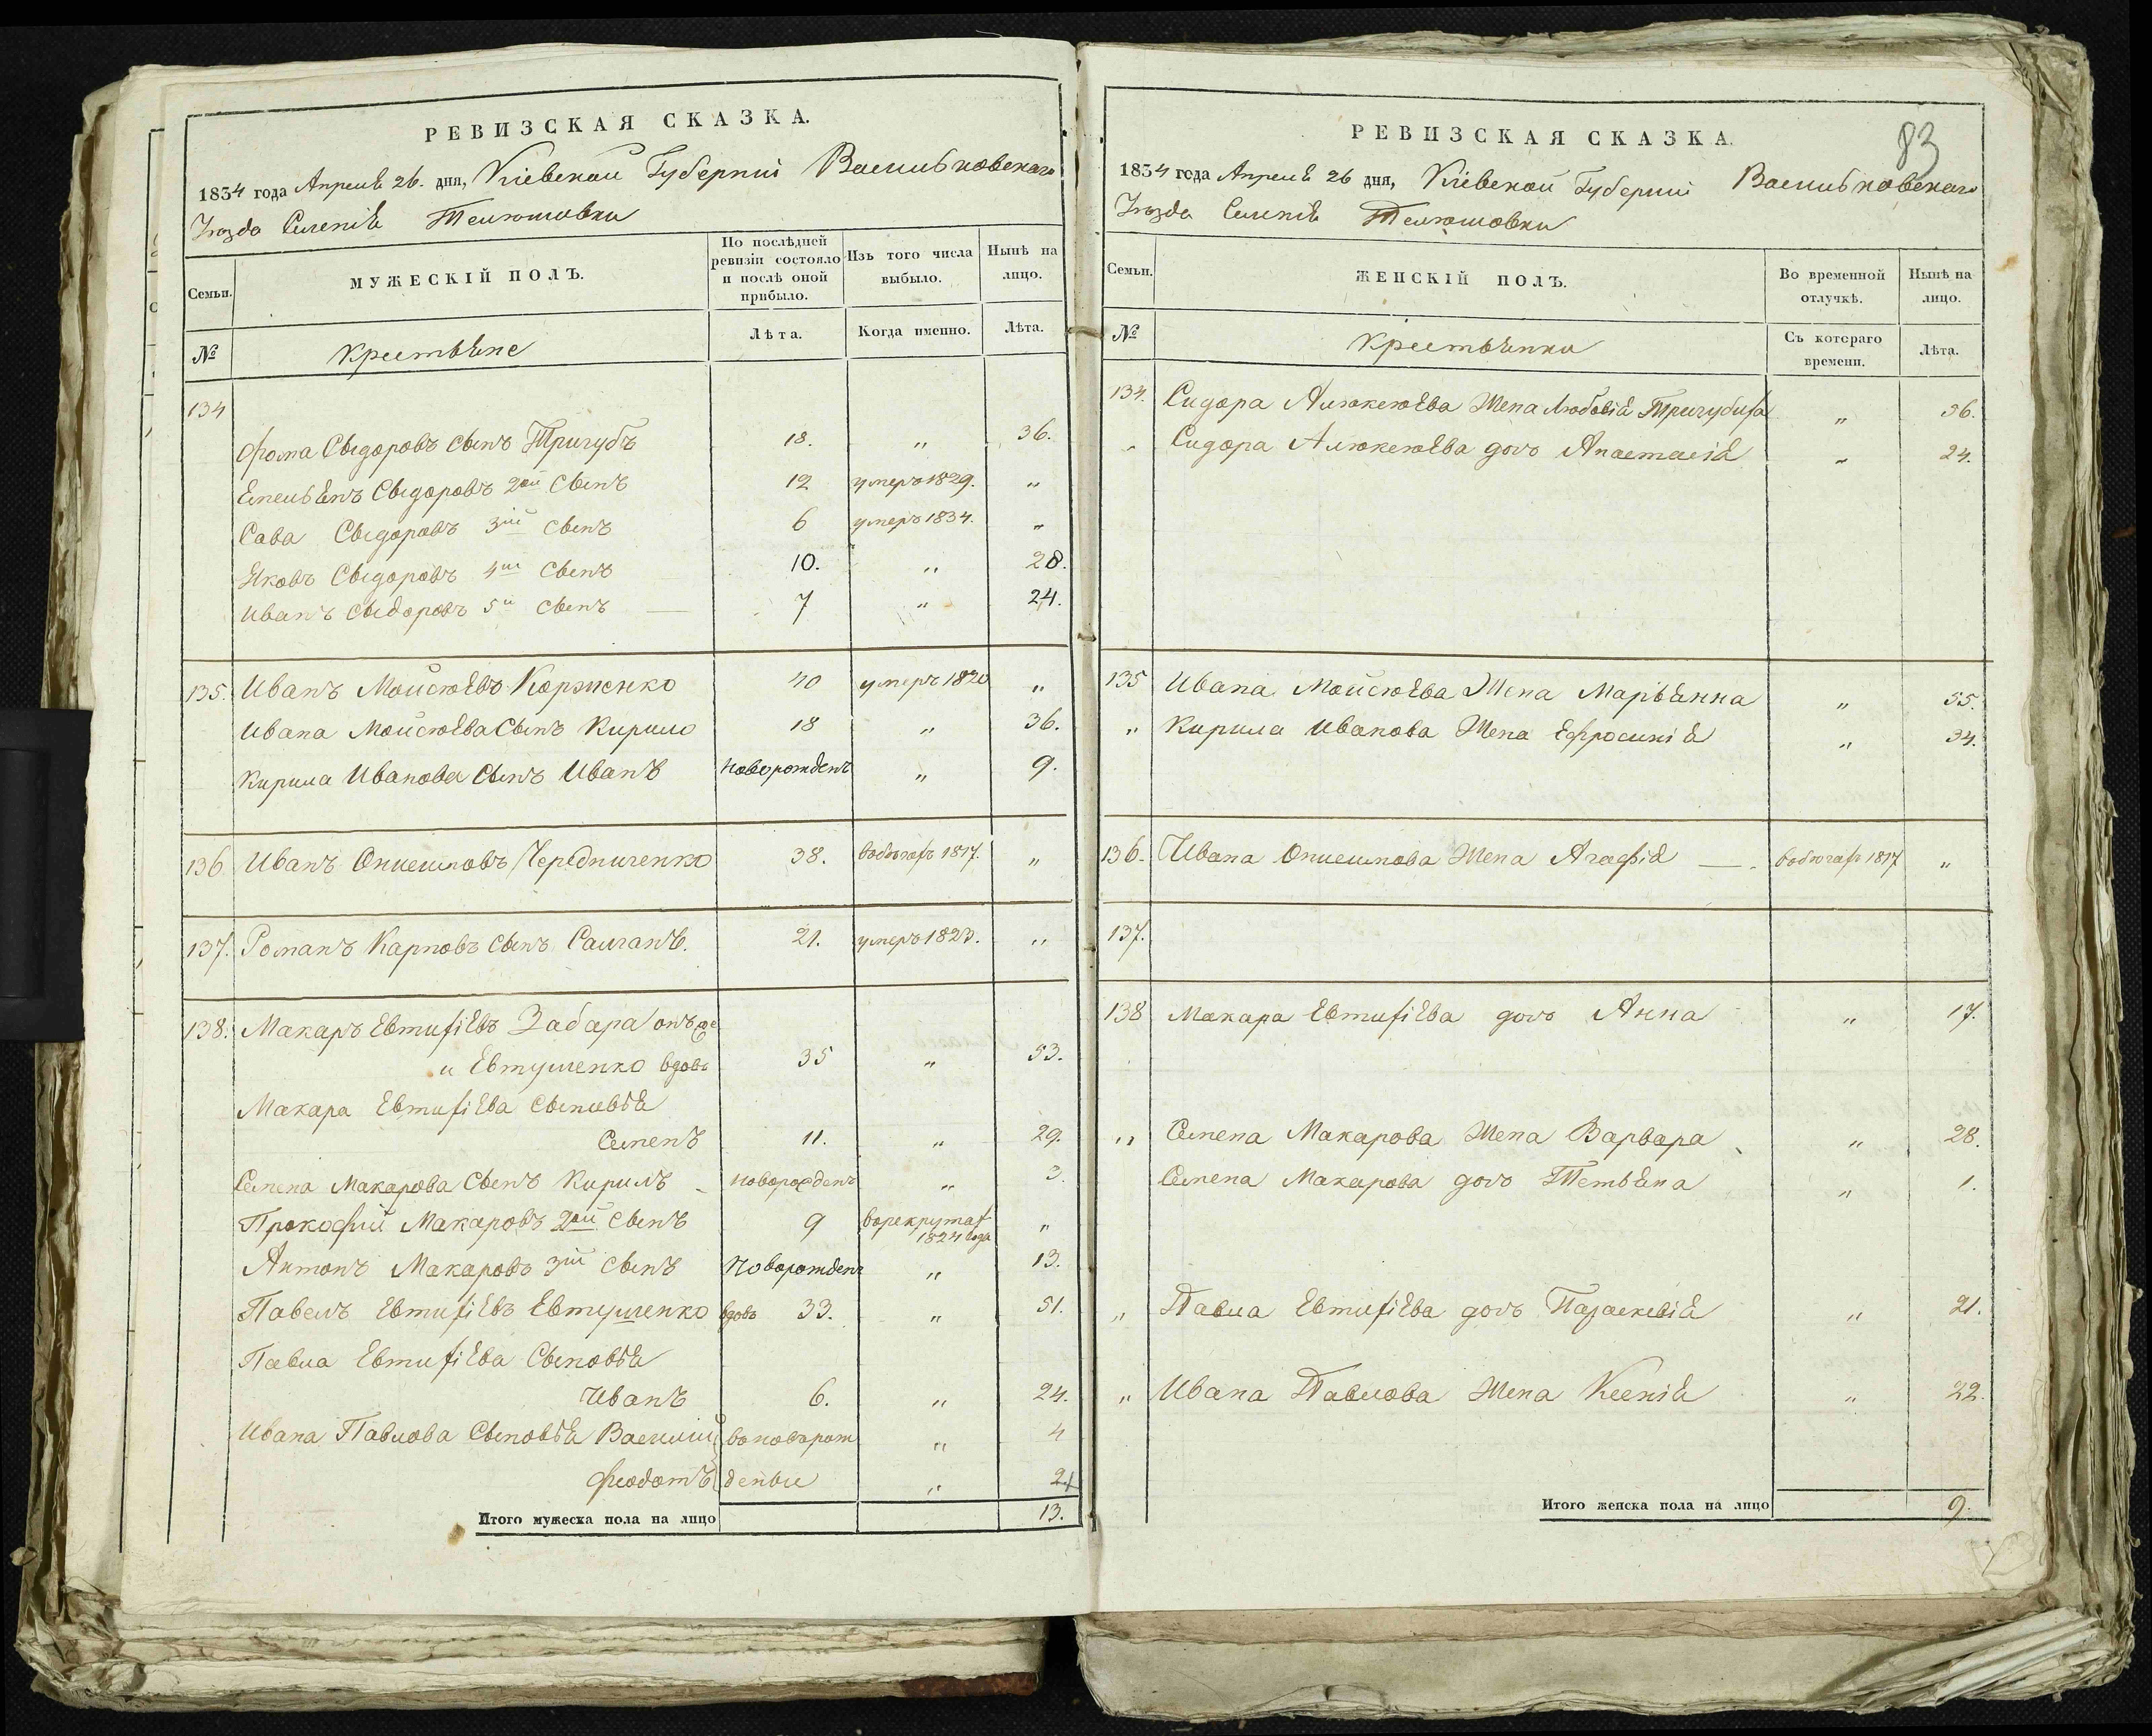 РЕВИЗСКАЯ СКАЗКА.
1834 года Апреля 26. дня, Кіевской Губерніи Васильковскаго
Уѣзда Селенія Телюшовки
Семьи.
МУЖЕСКІЙ ПОЛЪ.
По послѣдней ревизіи состояло и послѣ оной прибыло.
Изъ того числа выбыло.
Нынѣ на лицо.
№
Крестьяне
Лѣта.
Когда именно.
Лѣта.
134
Фома Сыдоровъ сынъ Тригубъ 18. " 36.
Емельянъ Сыдоровъ 2ой сынъ 12 умеръ 1829. "
Сава Сыдоровъ 3ій сынъ 6 умеръ 1834. "
Яковъ Сыдоровъ 4ый сынъ 10. " 28.
Иванъ Сыдоровъ 5й сынъ 7 " 24.
135. Иванъ Мойсѣевъ Коржченко 40 умеръ 1820 "
Ивана Мойсѣева сынъ Кирило 18 " 36.
Кирила Иванова сынъ Иванъ Новорожденъ " 9.
136. Иванъ Онисимовъ Чередниченко 38. въ бѣгахъ 1817. "
137. Романъ Карповъ сынъ Салганъ. 21. умеръ 1823. "
138. Макаръ Евтифіевъ Забара онъ же
и Евтушенко вдовъ 35 " 53.
Макара Евтифіева сыновья
Семенъ 11. " 29.
Семена Макарова сынъ Кирилъ новорожденъ " 3.
Прокофій Макаровъ 2ой сынъ 9 в рекрутах 1824 года "
Антонъ Макаровъ 3ій сынъ Новорожденъ " 13.
Павелъ Евтифіевъ Евтушенко вдовъ 33. " 51.
Павла Евтифіева сыновья
Иванъ 6. " 24.
Ивана Павлова сыновья Василій новорож " 4
Феодотъ денные " 2
Итого мужеска пола на лицо 13.
83
РЕВИЗСКАЯ СКАЗКА.
1834 года Апреля 26 дня, Кіевской Губерніи Васильковскаго
Уѣзда Селенія Телюшовки
Семьи.
ЖЕНСКІЙ ПОЛЪ.
Во временной отлучкѣ.
Нынѣ на лицо.
№
Крестьянки
Съ котораго времени.
Лѣта.
134. Сидора Алексѣева жена Любовія Тригубиха " 56.
" Сидора Алексѣева дочь Анастасія " 24.
135 Ивана Мойсѣева жена Марьянна " 55.
" Кирила Иванова жена Ефросинія " 34.
136. Ивана Онисимова жена Агафія в бѣгах 1817 "
137.
138 Макара Евтифіева дочь Анна " 17.
" Семена Макарова жена Варвара " 28.
Семена Макарова дочь Тетьяна " 1.
" Павла Евтифіева дочь Параскевія " 21.
" Ивана Павлова жена Ксенія " 22.
Итого женска пола на лицо 9.